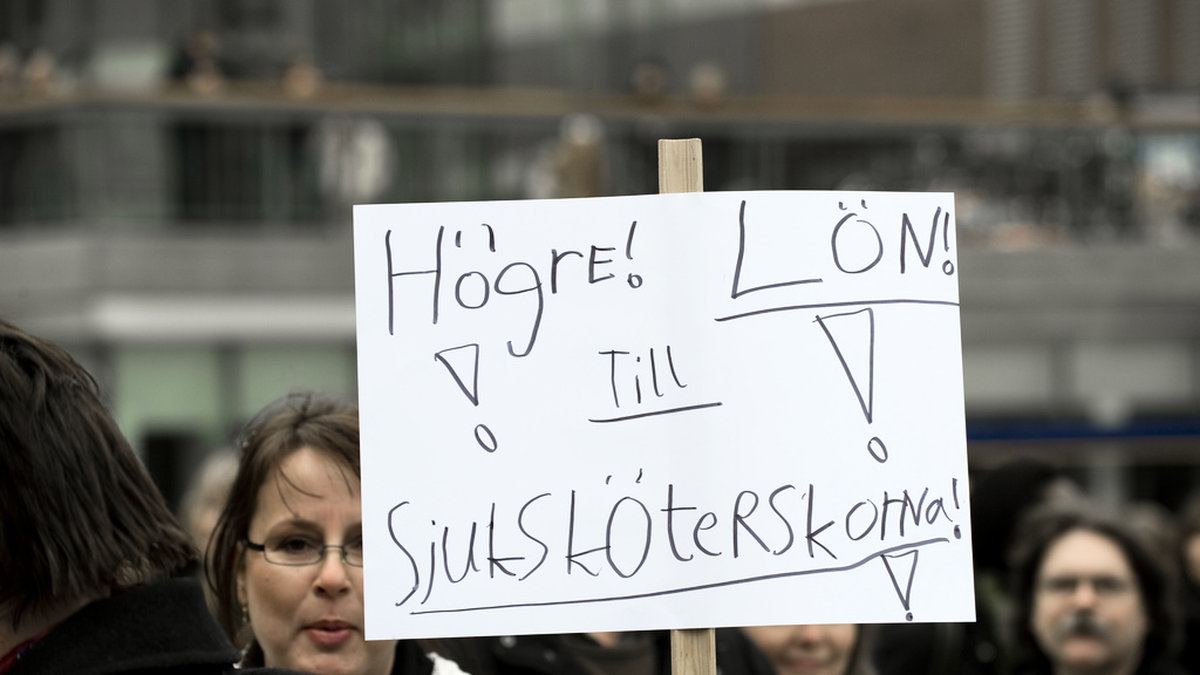 HögrE! LÖN!
! Till !
SjukSKÖteRSkorNa!
!